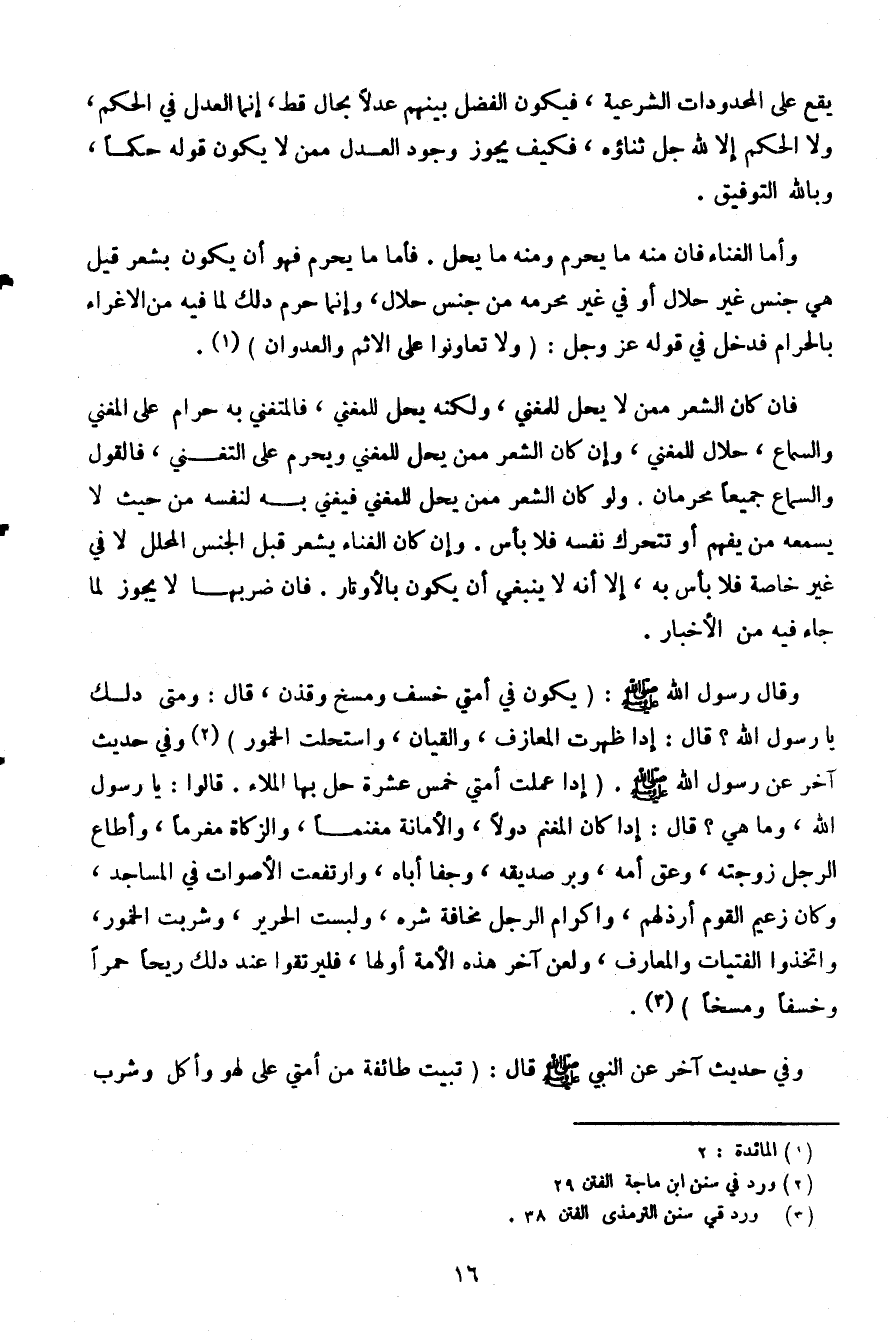 يقع على المحدودات الشرعية ، فيكون الفضل بينهم عدلاً بحال قط، إنما العدل في الحكم،
ولا الحكم إلا لله جل ثناؤه ، فكيف يجوز وجود العـدل ممن لا يكون قوله حكمـاً ،
وبالله التوفيق .
وأما الغناء فان منه ما يحرم ومنه ما يحل . فأما ما يحرم فهو أن يكون بشعر قيل
هي جنس غير حلال أو في غير محرمه من جنس حلال، وإنما حرم دلك لما فيه من الاغراء
بالحرام فدخل في قوله عز وجل : ( ولا تعاونوا على الاثم والعدوان ) (١) .
فان كان الشعر ممن لا يحل للمغني ، ولكنه يحل للمغني ، فالمتغني به حرام على المغني
والسماع ، حلال للمغني ، وإن كان الشعر ممن يحل للمغني ويحرم على التغـني ، فالقول
والسماع جميعاً محرمان . ولو كان الشعر ممن يحل للمغني فيغني بـه لنفسه من حيث لا
يسمعه من يفهم أو تتحرك نفسه فلا بأس . وإن كان الغناء يشعر قبل الجنس المحلل لا في
غير خاصة فلا بأس به ، إلا أنه لا ينبغي أن يكون بالأوتار . فان ضربهـا لا يجوز لما
جاء فيه من الأخبار .
وقال رسول الله ﷺ : ( يكون في أمتي خسف ومسخ وقذن ، قال : ومتى دلـك
يا رسول الله ؟ قال : إدا ظهرت المعازف ، والقيان ، واستحلت الخمور ) (٢) وفي حديث
آخر عن رسول الله ﷺ . ( إدا عملت أمتي خمس عشرة حل بها الملاء . قالوا : يا رسول
الله ، وما هي ؟ قال : إدا كان المغنم دولاً ، والأمانة مغنمـاً ، والزكاة مغرماً ، وأطاع
الرجل زوجته ، وعق أمه ، وبر صديقه ، وجفا أباه ، وارتفعت الأصوات في المساجد ،
وكان زعيم القوم أرذلهم ، واكرام الرجل مخافة شره ، ولبست الحرير ، وشربت الخمور،
واتخذوا الفتيات والمعارف ، ولعن آخر هذه الأمة أولها ، فليرتقوا عند دلك ريحاً حمراً
وخسفاً ومسخاً ) (٣) .
وفي حديث آخر عن النبي ﷺ قال : ( تبيت طائفة من أمتي على لهو وأكل وشرب
(١) المائدة : ٢
(٢) ورد في سنن ابن ماجة الفتن ٢٩
(٣) ورد قي سنن الترمذى الفتن ٣٨ .
١٦